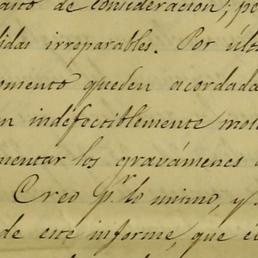 de consideracion; pe
didas irreparables. Por últ
omento queden acordada
n indefectiblemente mol
mentar los gravámenes
Creo pr. lo mismo, y
de este informe, que